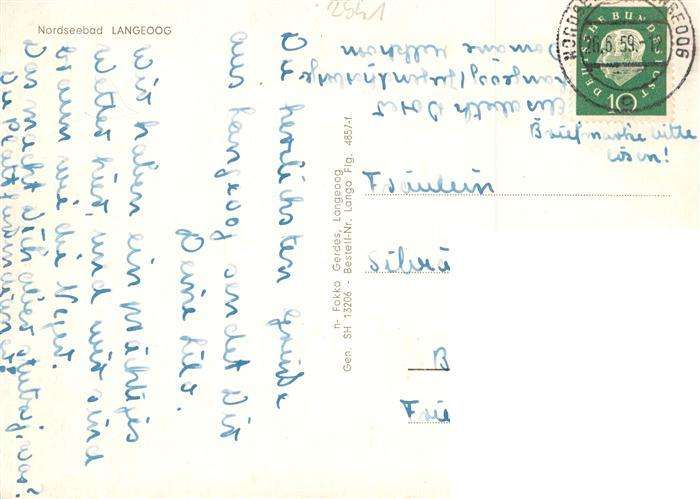 2541
Nordseebad LANGEOOG
Die herzlichsten Grüße
aus Langeoog sendet Dir
Deine Lilo.
Wir haben ein prächtiges
Wetter hier, und wir sind
braun wie die Neger.
Das macht Dich aber stutzig, was?
Die
Elisabeth
Langeoog
Briefmarke bitte
lösen!
DEUTSCHE BUNDESPOST
10
NORDSEEBAD LANGEOOG
26.6.59
Fräulein
Silvia
B
Frie
n- Fokko Gerdes, Langeoog
Gen. SH 13206 - Bestell-Nr. Lango Fig. 4857-f.